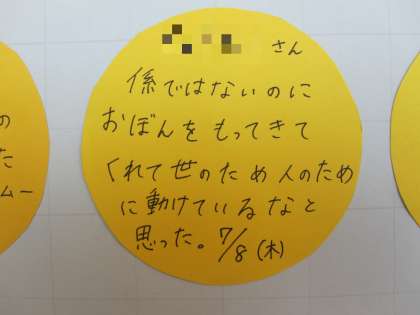 さん
係ではないのに
おぼんをもってきて
くれて世のため人のため
に動けているなと
思った。7/8(木)
の
た
ムー